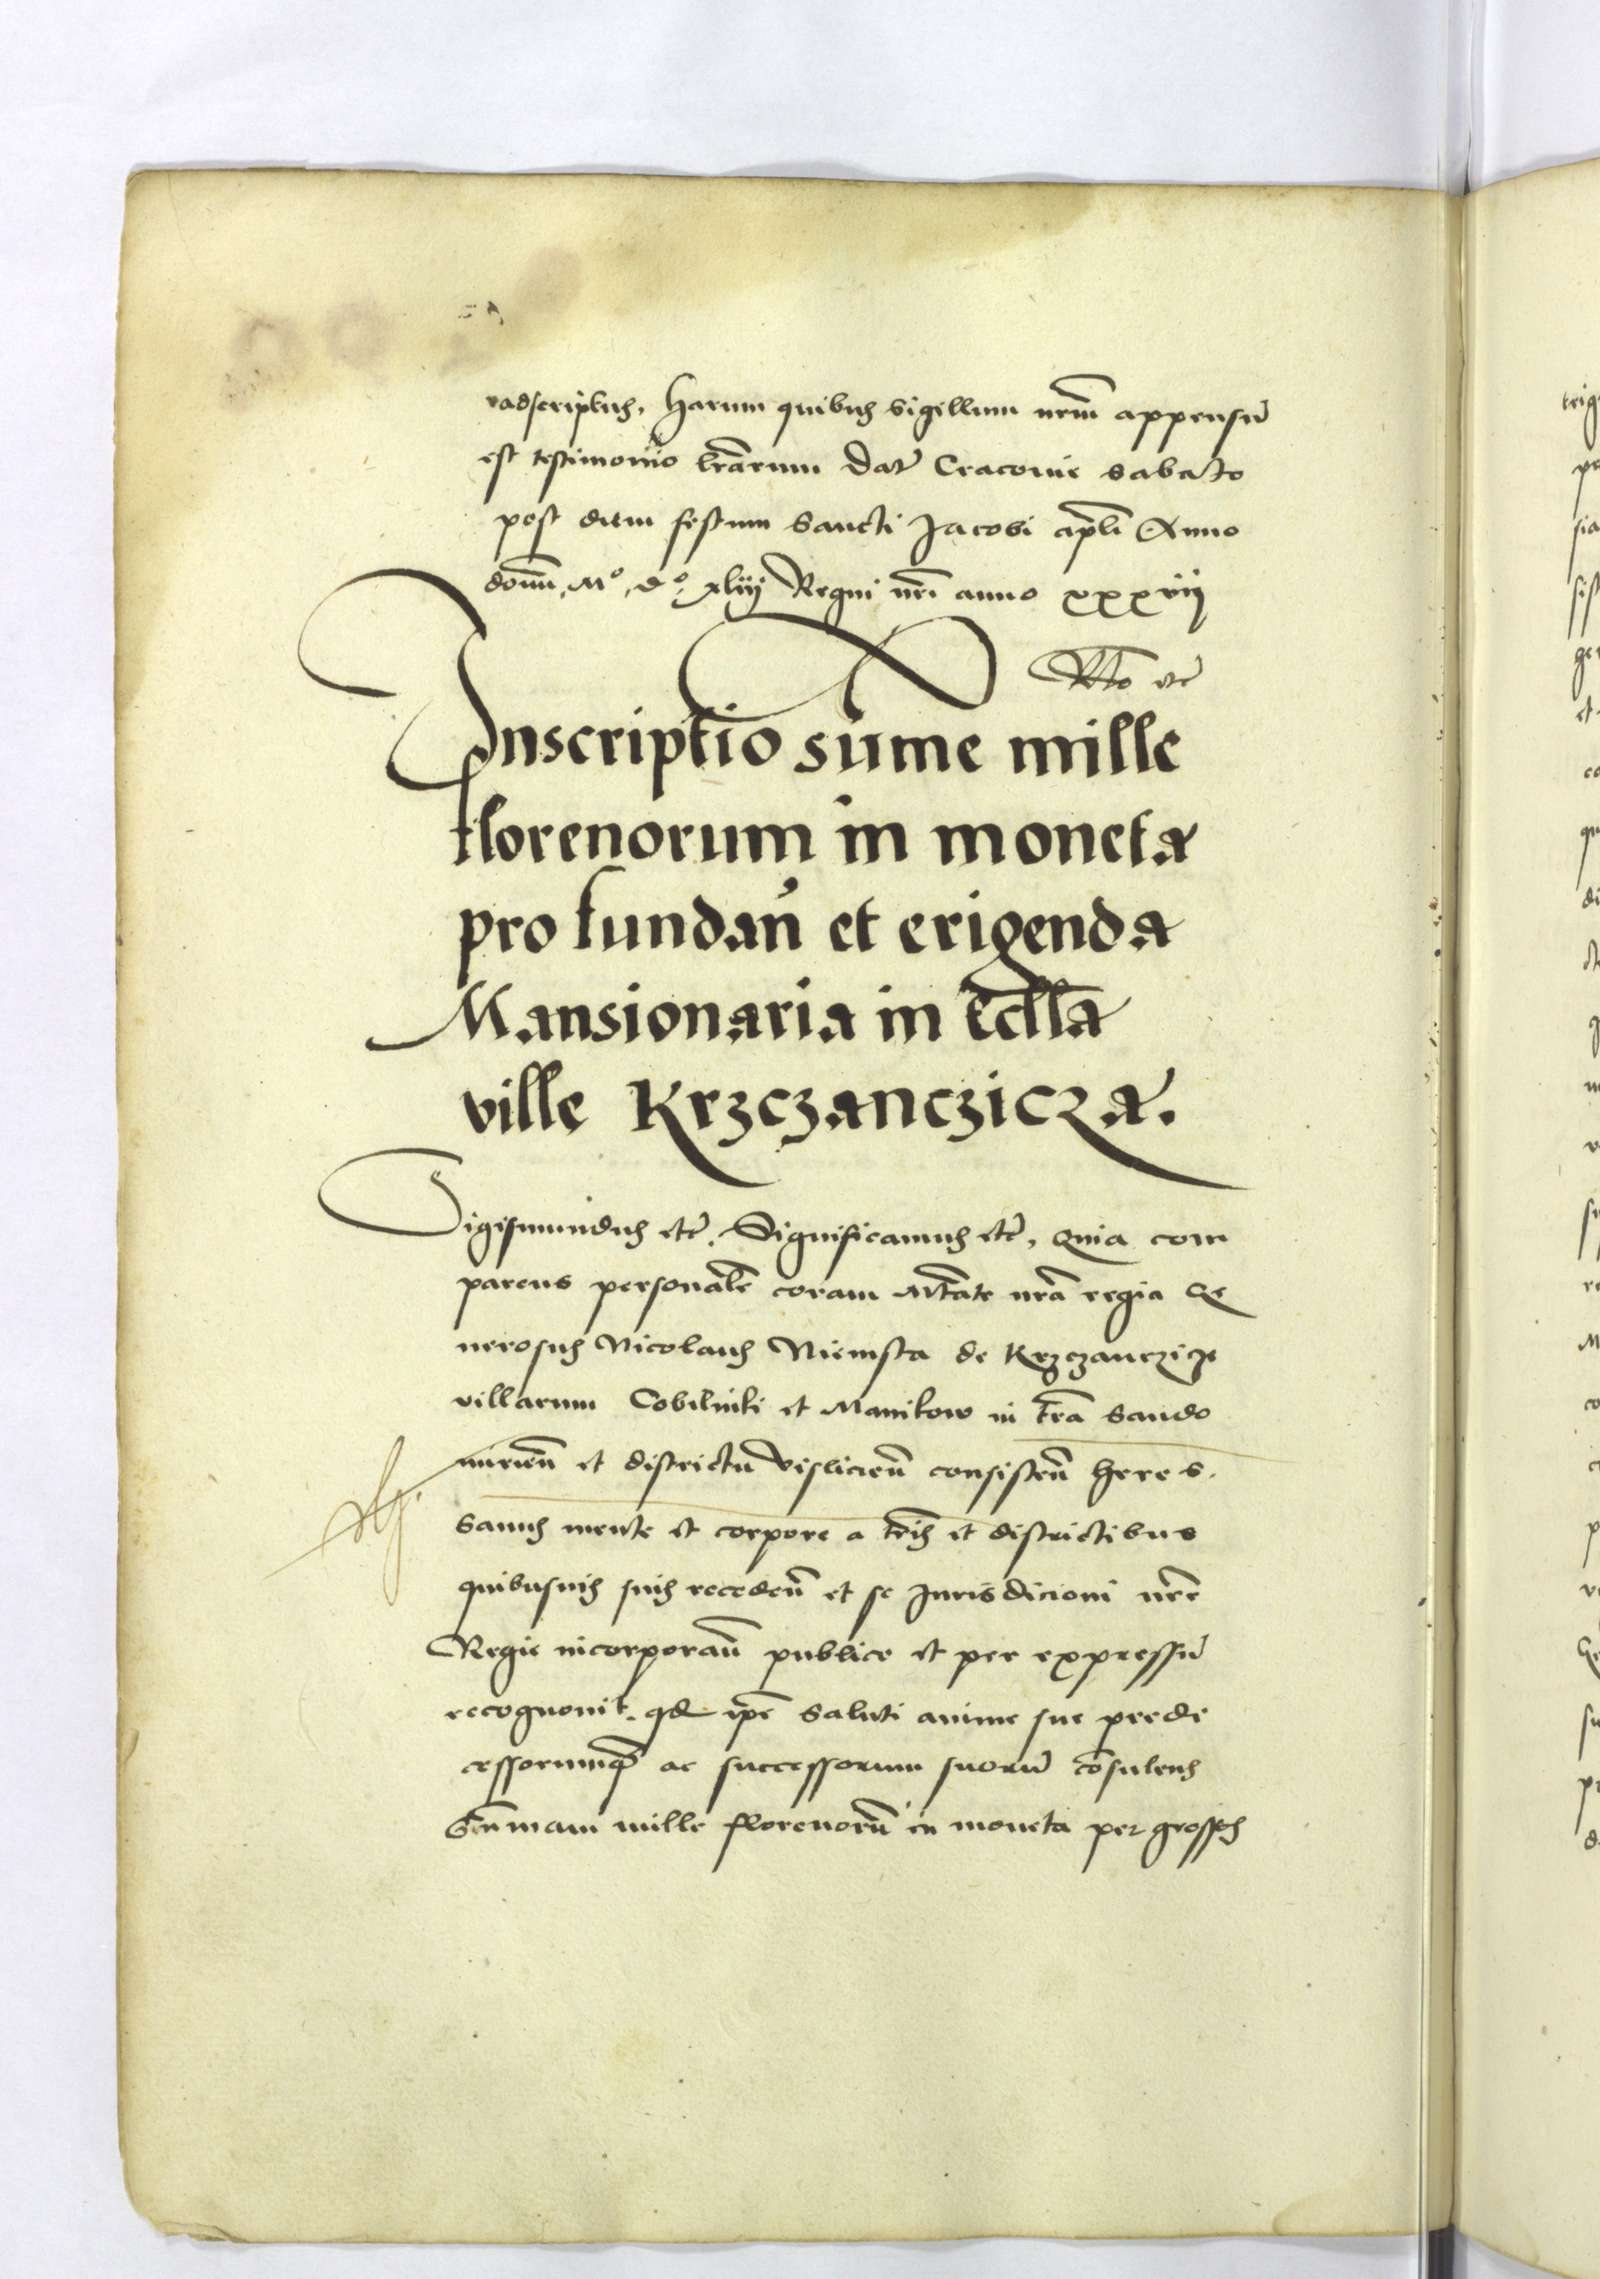 radscriptus. Harum quibus sigillum nrm̄ appensū
est testimonio lrārum Dat̄ Cracovie sabato
post diem festum Sancti Jacobi apli Anno
domi. Mº. dº. xliij Regni nrī anno xxxvij
Rtō etc̄
Inscriptio sum̄e mille
florenorum in moneta
pro fundan̄ et erigenda
Mansionaria in eccl̄ia
ville Krzczanczicza.
Sigismundus etc̄. Significamus etc̄. Quia com
parens personalr̄ coram Mtāte nrā regia Ge
nerosus Nicolaus Niemsta de Krzczanczicze
villarum Cobilniki et Manikow in trā Sando
mirien̄ et districtu vislicien̄ consisten̄ heres.
Sanus mente et corpore a trīs et districtibus
quibusuis suis receden̄ et se Jurisdicioni nrē
Regie incorporan̄ publice et per expressū
recognovit. qd ipē saluti anime sue prede
cessorumq̄ ac successorum suorū cōsulens
Sum̄mam mille florenorū in moneta per grossos